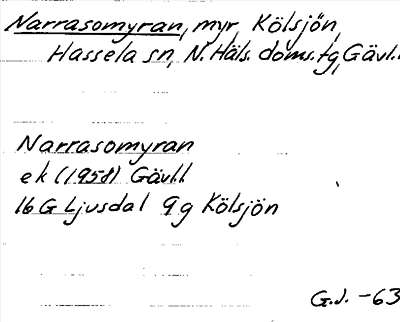 Narrasomyran, myr, Kölsjön,
Hassela sn, N. Häls. doms. tg, Gävl.l.
Narrasomyran
ek (1958) Gävl.l.
16 G Ljusdal 9g Kölsjön
G.J. -63